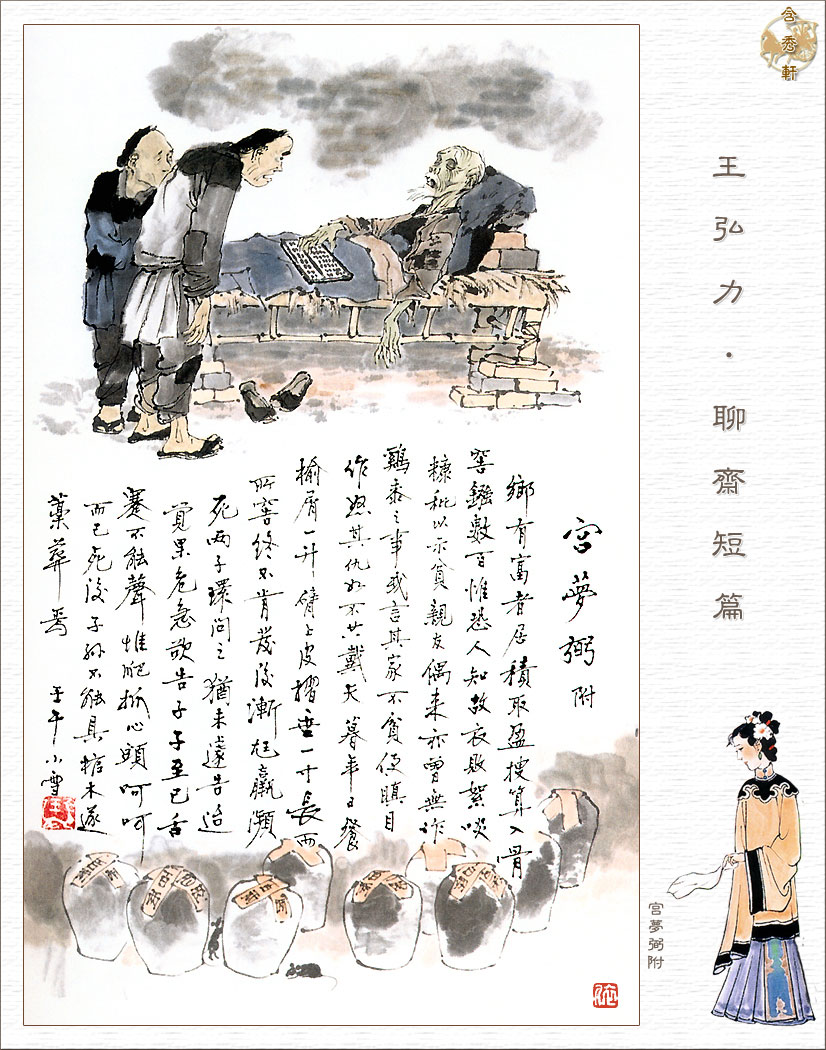 含秀軒
王弘力·聊齋短篇
宮夢弼 附
鄉有富者居積取盈搜算入骨
窖鏹數百惟恐人知故衣敗絮啖
糠秕以示貧親友偶來亦曾無作
鷄黍之事或言其家不貧便瞋目
作怒其仇如不共戴天暮年日餐
榆屑一升臂上皮摺垂一寸長而
所窖終不肯發後漸尪羸瀕
死兩子環問之猶未遽告迨
覺果危急欲告子子至已舌
蹇不能聲惟爬抓心頭呵呵
而已死後子孫不能具棺木遂
藁葬焉
壬午小雪
宮夢弼附